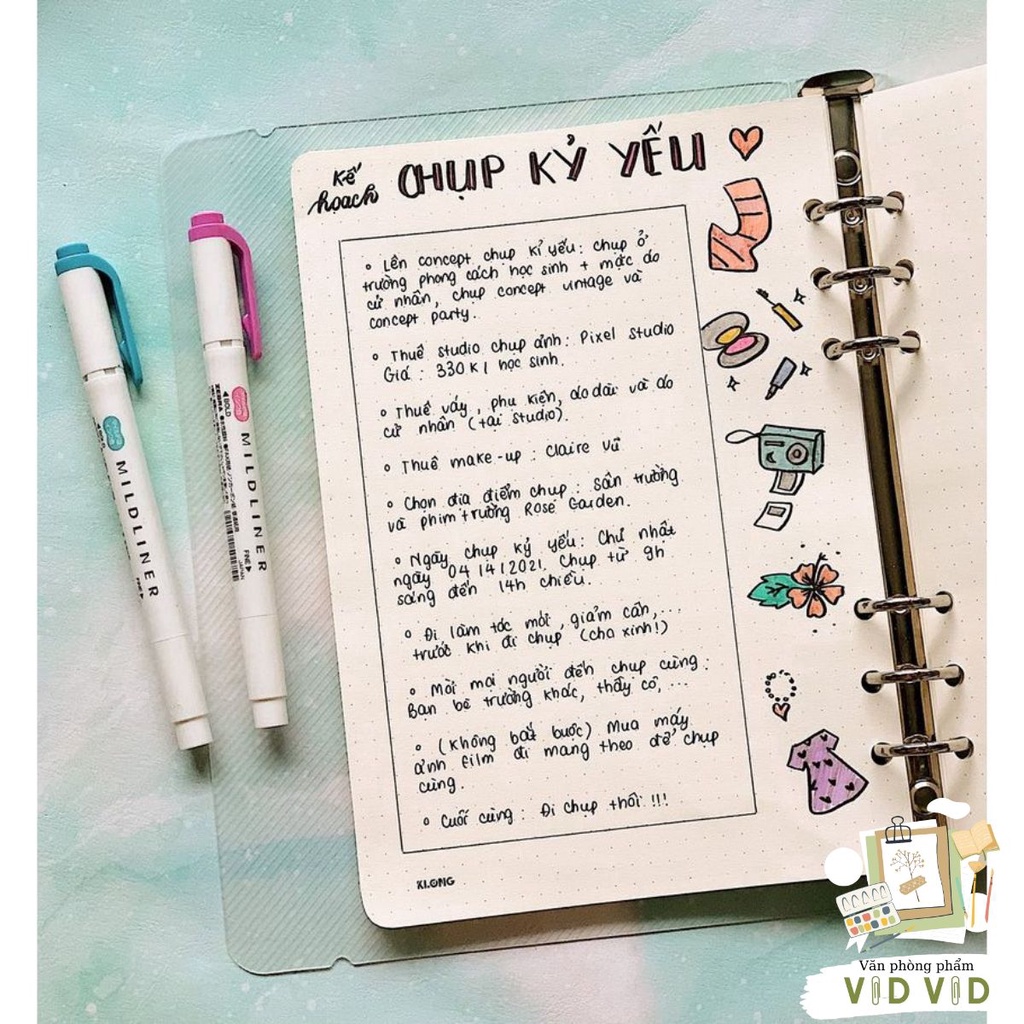 Kế hoạch
CHỤP KỶ YẾU
• Lên concept chụp kỉ yếu: chụp ở
trường phong cách học sinh + mặc áo
cử nhân, chụp concept vintage và
concept party.
• Thuê studio chụp ảnh: Pixel Studio
Giá: 330K/học sinh.
• Thuê váy, phụ kiện, áo dài và áo
cử nhân (tại studio).
• Thuê make-up: Claire Vũ
• Chọn địa điểm chụp: Sân trường
và phim trường Rose Garden.
• Ngày chụp kỷ yếu: Chủ nhật
ngày 04/4/2021. Chụp từ 9h
sáng đến 14h chiều.
• Đi làm tóc mới, giảm cân,...
trước khi đi chụp (cho xinh!)
• Mời mọi người đến chụp cùng:
Bạn bè trường khác, thầy cô,...
• (Không bắt buộc) Mua máy
ảnh film đi mang theo để chụp
cùng.
• Cuối cùng: Đi chụp thôi!!!
KLONG
MILDLINER
BOLD
ZEBRA
MILDLINER
FINE
JAPAN
Văn phòng phẩm
VID VID